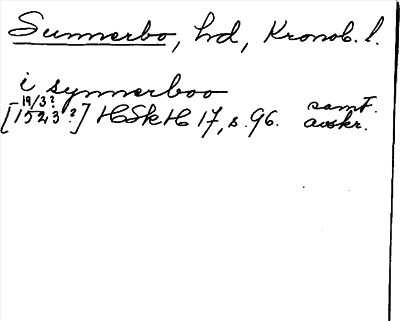 Sunnerbo, hd, Kronob. l.
i synnerboo
19/3?
[1523?] HSkH 17, s. 96. samt. avskr.